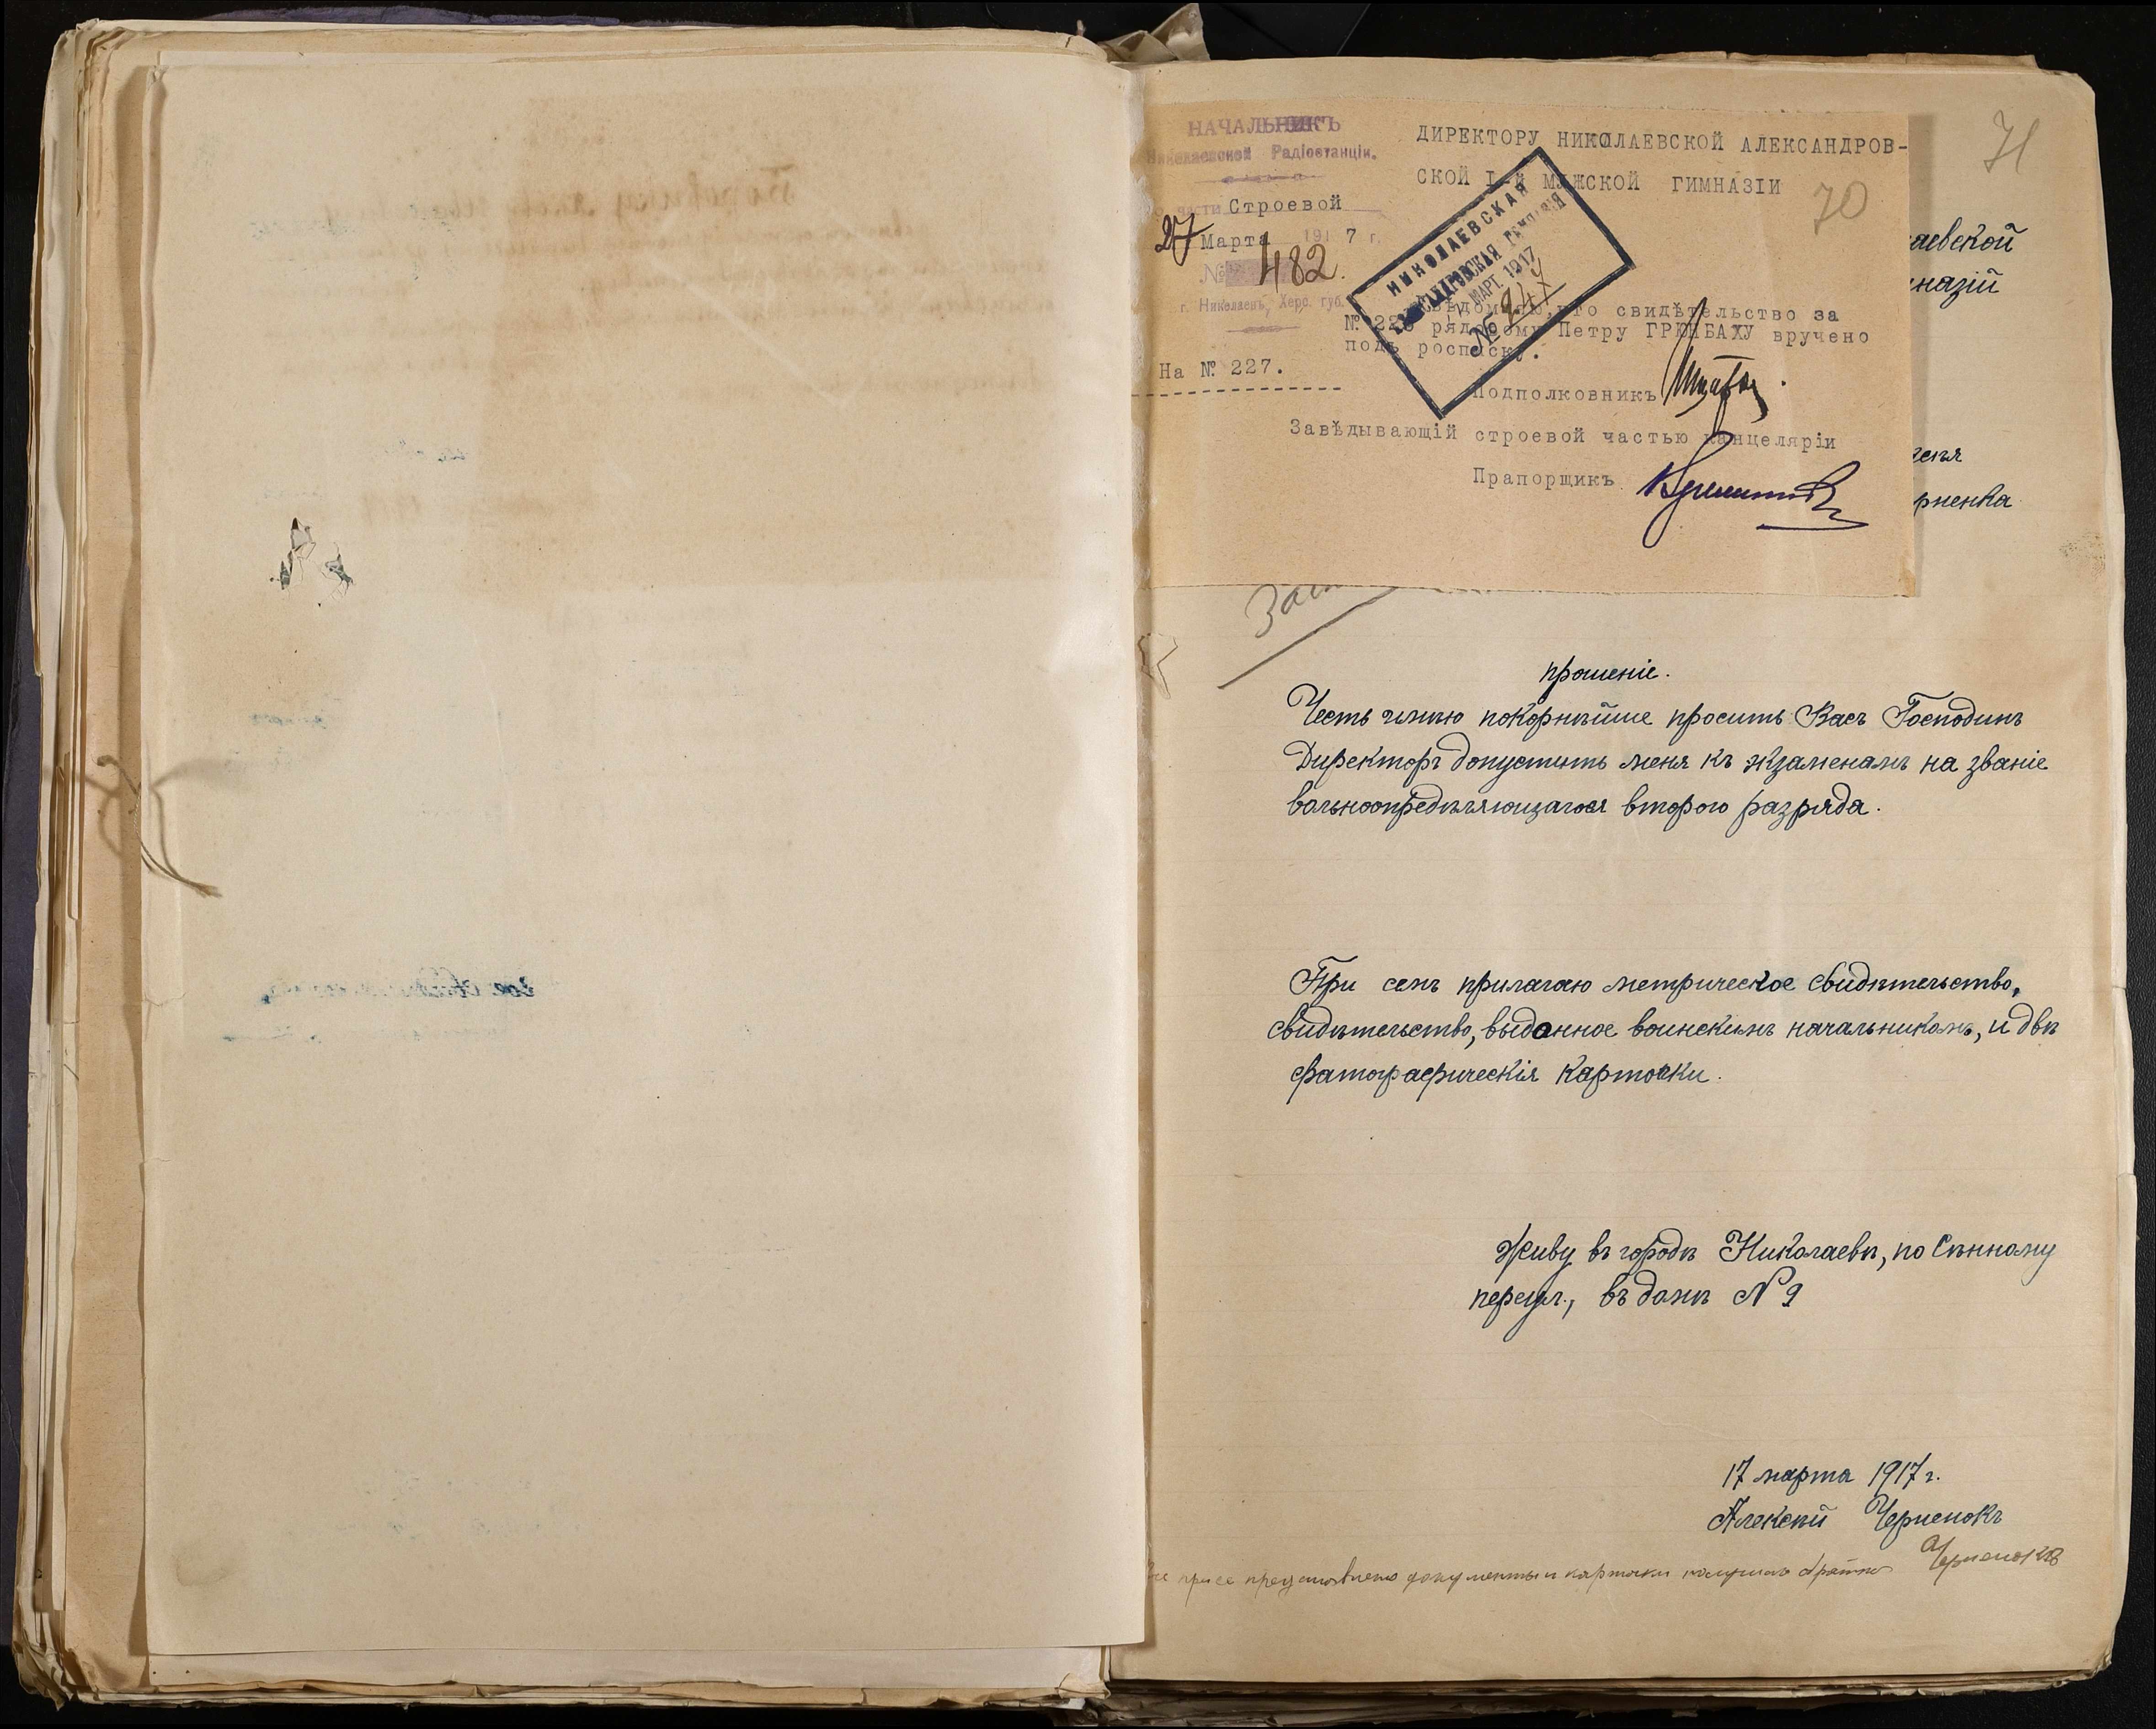 71
НАЧАЛЬНИКЪ
Николаевской Радіостанціи.
части Строевой
27 Марта 1917 г.
№ 482.
г. Николаевъ, Херс. губ.
На № 227.
ДИРЕКТОРУ НИКОЛАЕВСКОЙ АЛЕКСАНДРОВ-
СКОЙ I-й МУЖСКОЙ ГИМНАЗІИ
70
НИКОЛАЕВСКАЯ
АЛЕКСАНДРОВСКАЯ ГИМНАЗІЯ
МАРТ. 1917
№
что свидѣтельство за
№ рядовому Петру ГРЮНБАХУ вручено
подъ росписку.
Подполковникъ
Завѣдывающій строевой частью канцеляріи
Прапорщикъ
аевской
назій
рненка
прошеніе.
Честь имѣю покорнѣйше просить Васъ Господинъ
Директоръ допустить меня къ экзаменамъ на званіе
вольноопредѣляющагося второго разряда.
При семъ прилагаю метрическое свидѣтельство,
свидѣтельство, выданное воинскимъ начальникомъ, и двѣ
фатографическія карточки.
Живу въ городѣ Николаевѣ, по Сѣнному
переул., въ домѣ № 9
17 марта 1917 г.
Алексѣй Черненокъ
документы и карточки получилъ обратно Черненокъ